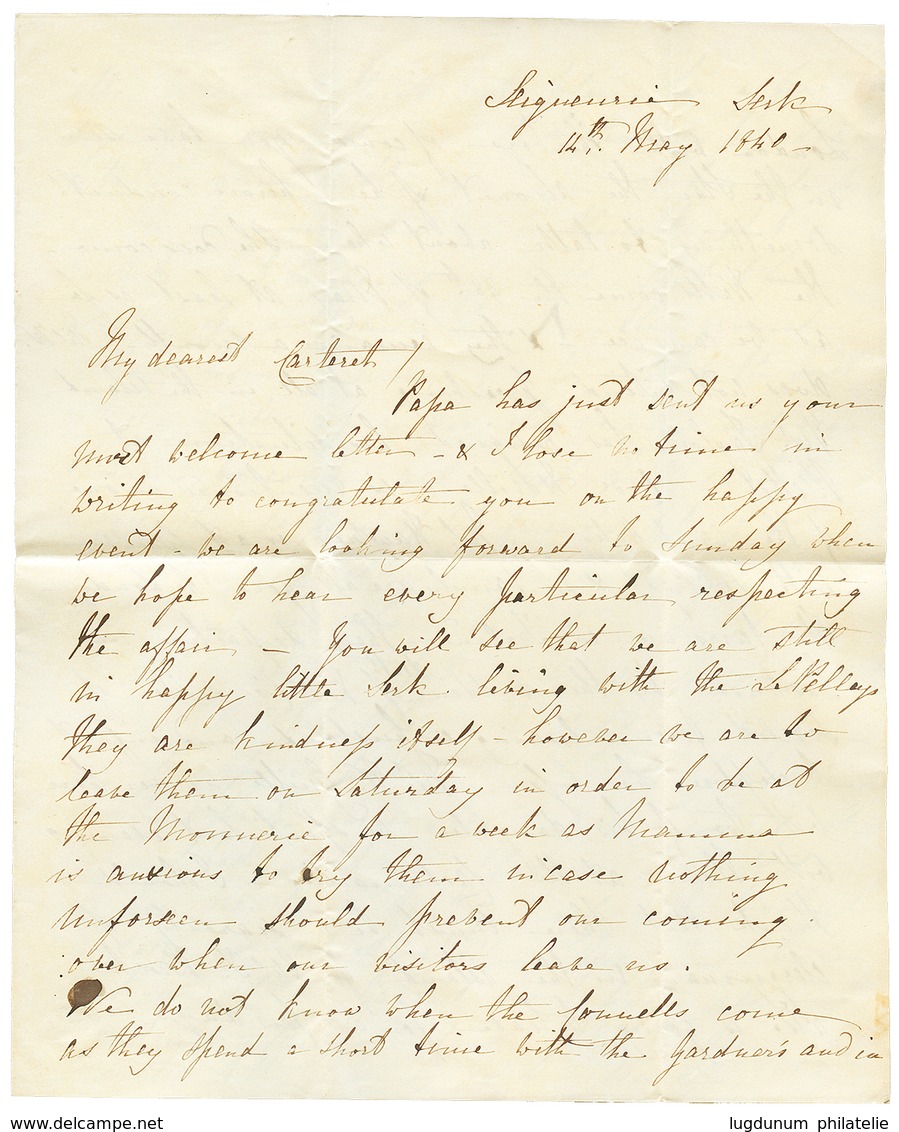 Seigneurie Serk
14th. May 1840 -
My dearest Carteret /
Papa has just sent us your
most welcome letter - & I lose no time in
writing to congratulate you on the happy
event - we are looking forward to Sunday when
we hope to hear every particular respecting
the affair - You will see that we are still
in happy little Serk living with the Le Pelleys
they are kindness itself - however we are to
leave them on Saturday in order to be at
the Monnerie for a week as Mamma
is anxious to try them incase nothing
unforseen should prevent our coming
over when our visitors leave us.
We do not know when the Connells come
as they spend a short time with the Gardner's and in
www.delcampe.net
lugdunum philatelie